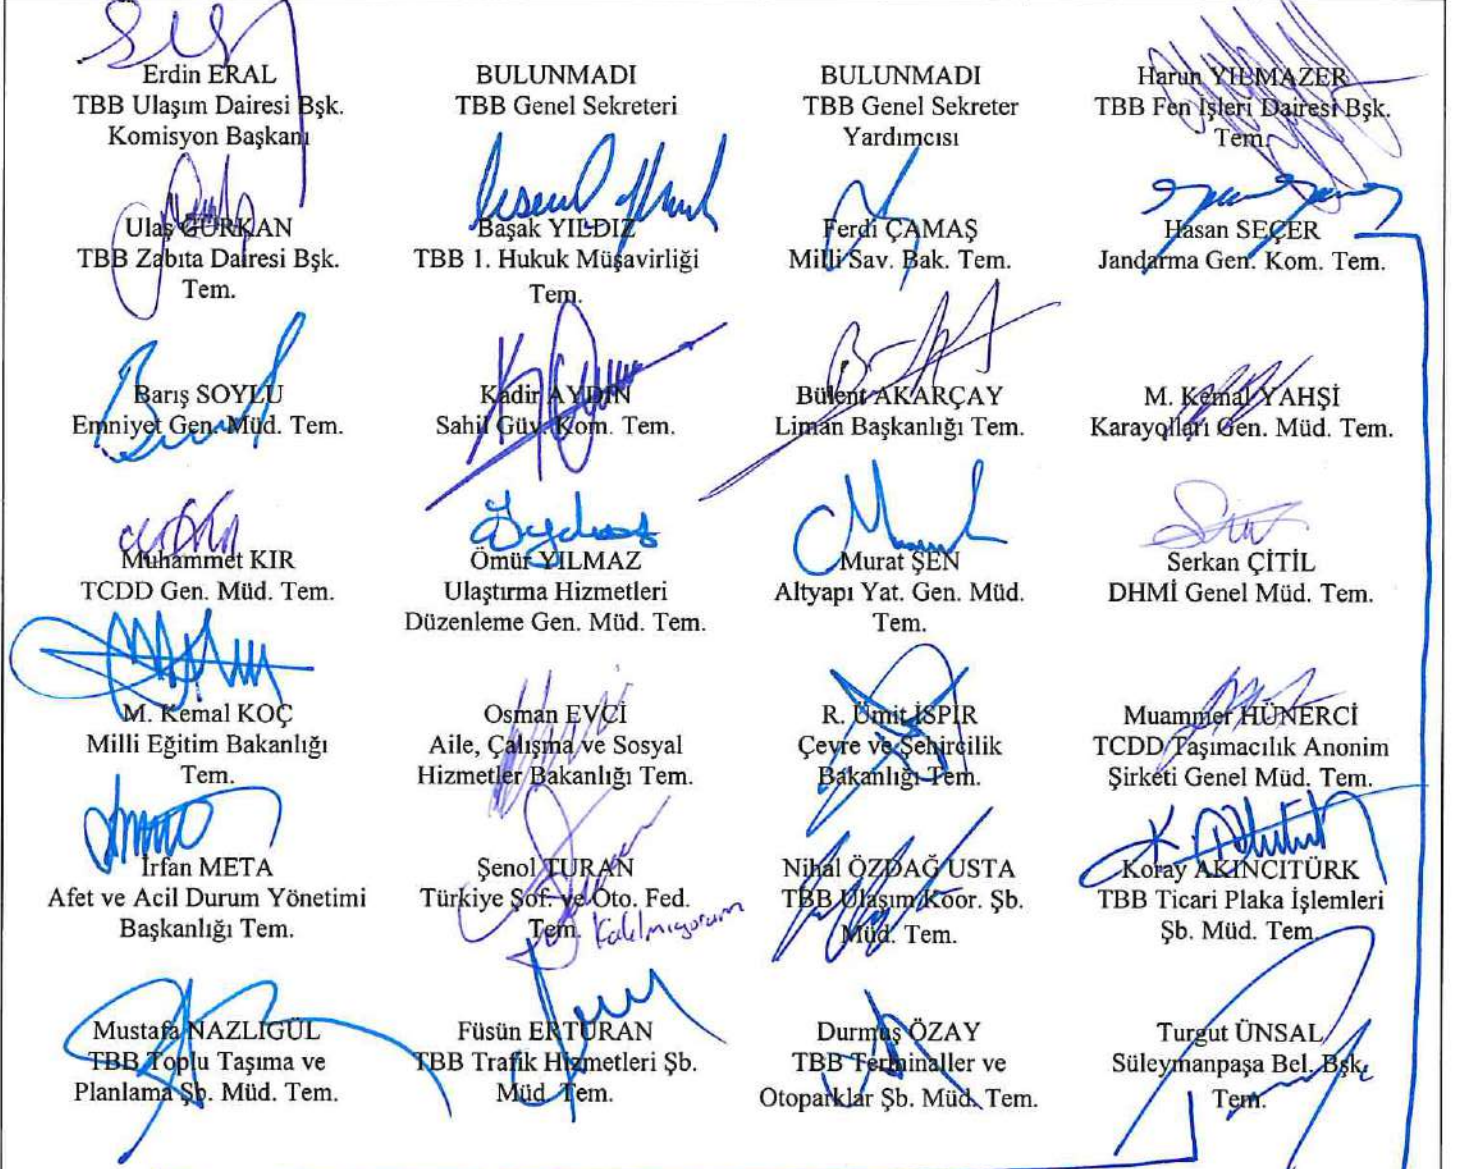 Erdin ERAL
TBB Ulaşım Dairesi Bşk.
Komisyon Başkanı
BULUNMADI
TBB Genel Sekreteri
BULUNMADI
TBB Genel Sekreter
Yardımcısı
Harun YILMAZER
TBB Fen İşleri Dairesi Bşk.
Tem.
Ulaş GÜRKAN
TBB Zabıta Dairesi Bşk.
Tem.
Başak YILDIZ
TBB 1. Hukuk Müşavirliği
Tem.
Ferdi ÇAMAŞ
Milli Sav. Bak. Tem.
Hasan SEÇER
Jandarma Gen. Kom. Tem.
Barış SOYLU
Emniyet Gen. Müd. Tem.
Kadir AYDIN
Sahil Güv. Kom. Tem.
Bülent AKARÇAY
Liman Başkanlığı Tem.
M. Kemal YAHŞİ
Karayolları Gen. Müd. Tem.
Muhammet KIR
TCDD Gen. Müd. Tem.
Ömür YILMAZ
Ulaştırma Hizmetleri
Düzenleme Gen. Müd. Tem.
Murat ŞEN
Altyapı Yat. Gen. Müd.
Tem.
Serkan ÇİTİL
DHMİ Genel Müd. Tem.
M. Kemal KOÇ
Milli Eğitim Bakanlığı
Tem.
Osman EVCİ
Aile, Çalışma ve Sosyal
Hizmetler Bakanlığı Tem.
R. Ümit İSPİR
Çevre ve Şehircilik
Bakanlığı Tem.
Muammer HÜNERCİ
TCDD Taşımacılık Anonim
Şirketi Genel Müd. Tem.
İrfan META
Afet ve Acil Durum Yönetimi
Başkanlığı Tem.
Şenol TURAN
Türkiye Şof. ve Oto. Fed.
Tem. Katılmıyorum
Nihal ÖZDAĞ USTA
TBB Ulaşım Koor. Şb.
Müd. Tem.
Koray AKINCITÜRK
TBB Ticari Plaka İşlemleri
Şb. Müd. Tem.
Mustafa NAZLIGÜL
TBB Toplu Taşıma ve
Planlama Şb. Müd. Tem.
Füsün ERTURAN
TBB Trafik Hizmetleri Şb.
Müd. Tem.
Durmuş ÖZAY
TBB Terminaller ve
Otoparklar Şb. Müd. Tem.
Turgut ÜNSAL
Süleymanpaşa Bel. Bşk.
Tem.